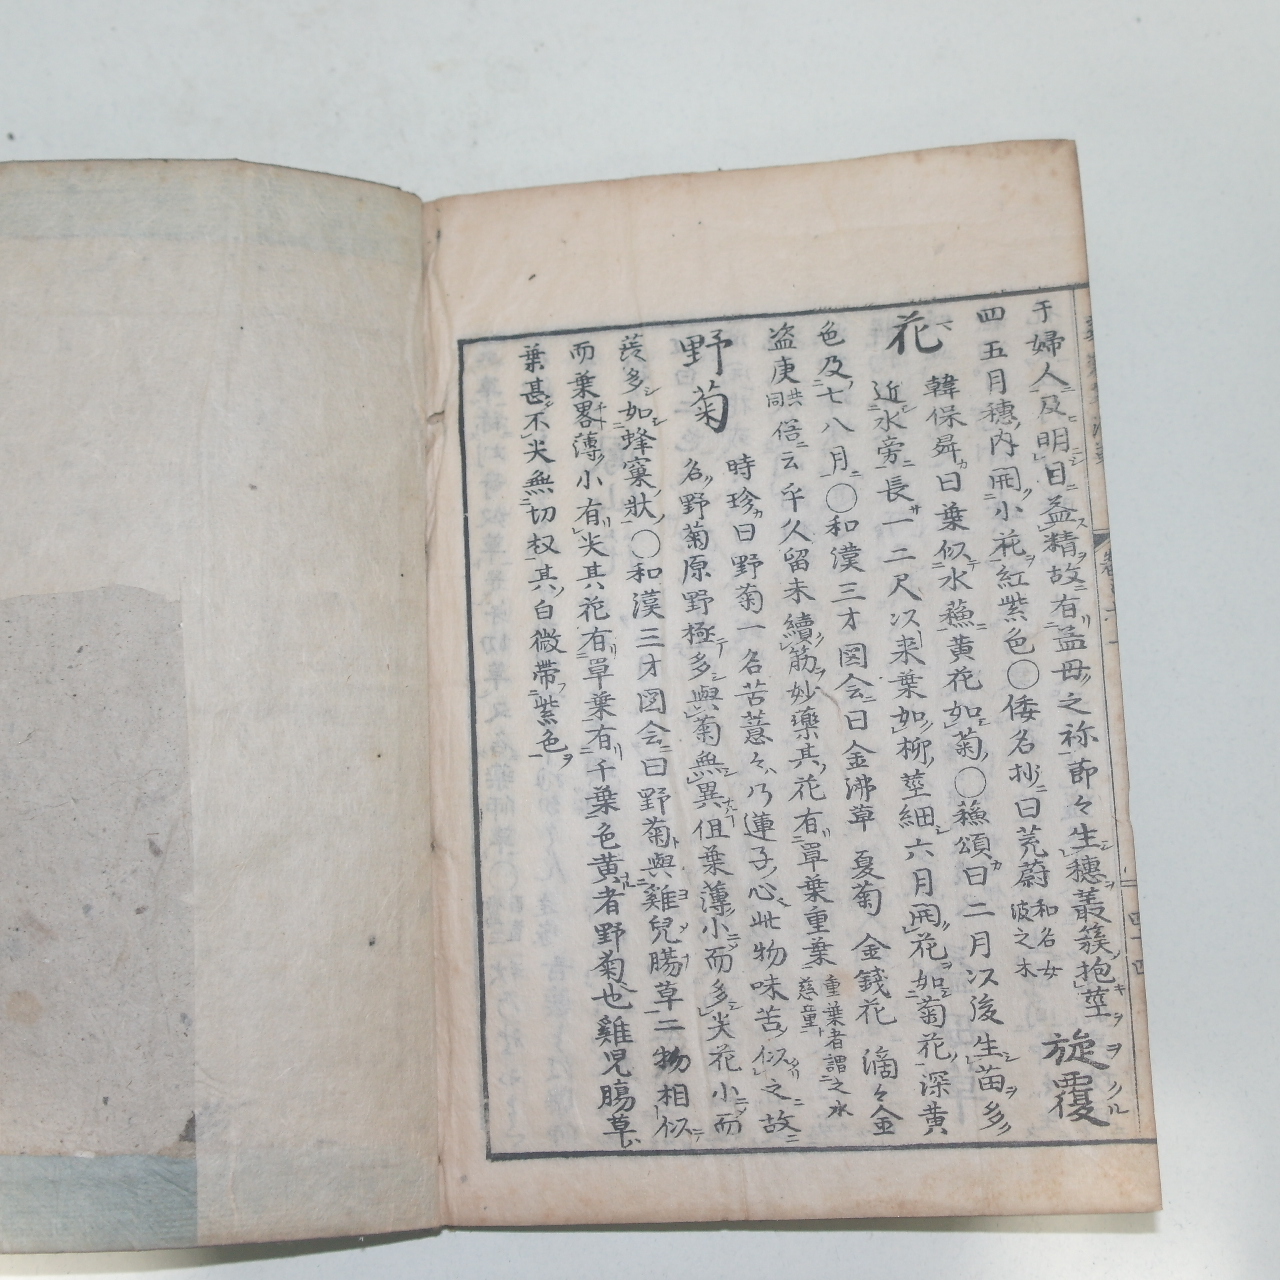 于婦人及明目益精故有益母之称節々生穗叢簇抱莖 旋覆
四五月穗内開小花紅紫色〇倭名抄曰茺蔚 和名女 波之木
花 韓保昇曰葉似水蘓黄花如菊〇蘓頌曰二月以後生苗多
近水旁長一二尺以来葉如柳莖細六月開花如菊花深黄
色及七八月〇和漢三才図会曰金沸草 夏菊 金錢花 滴々金
盗庚 共同 俗云乎久留末續筋妙藥其花有單葉重葉 重葉者謂之水 慈童
野菊 時珍曰野菊一名苦薏々乃蓮子心此物味苦似之故
名野菊原野極多與菊無異但葉薄小而多尖花小而
蕊多如蜂窠狀〇和漢三才図会曰野菊與雞兒腸草二物相似
而葉畧薄小有尖其花有單葉有千葉色黄者野菊也雞児腸草
葉甚不尖無切杈其白微帶紫色